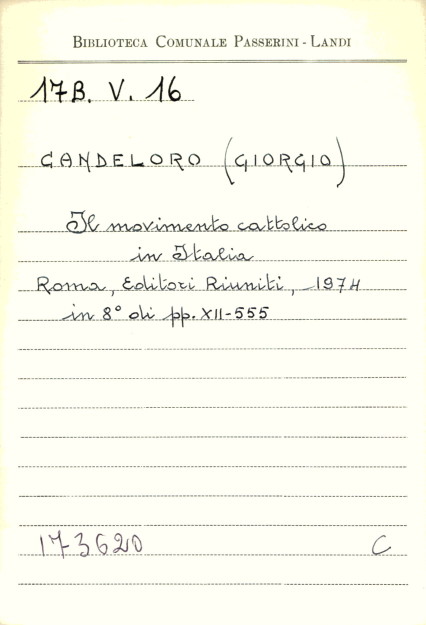 BIBLIOTECA COMUNALE PASSERINI - LANDI
17B. V. 16
CANDELORO (GIORGIO)
Il movimento cattolico
in Italia
Roma, Editori Riuniti, 1974
in 8° di pp. XII-555
173620 C